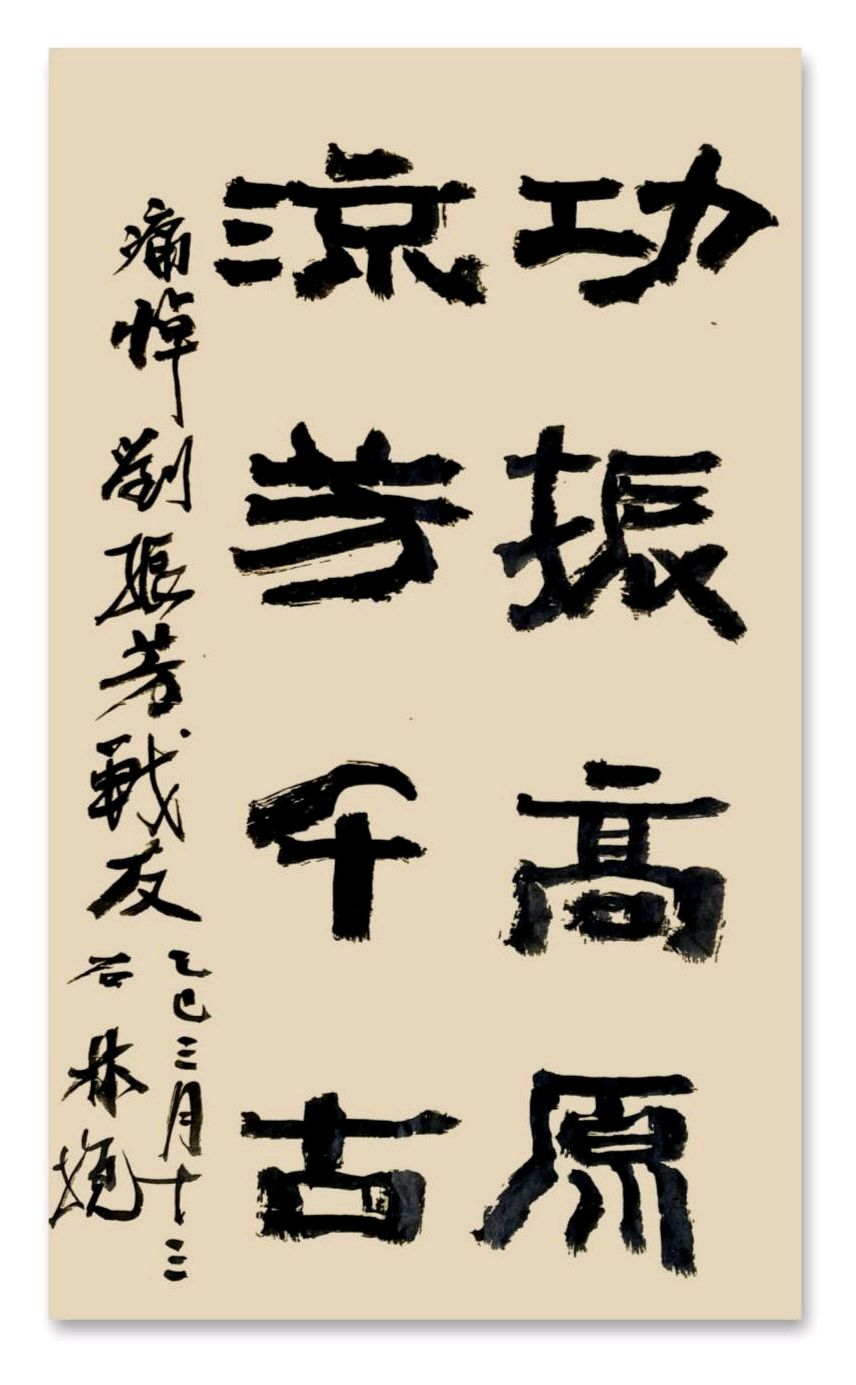 功振高原
涼芳千古
痛悼劉振芳戰友
乙巳三月十三
石林挽